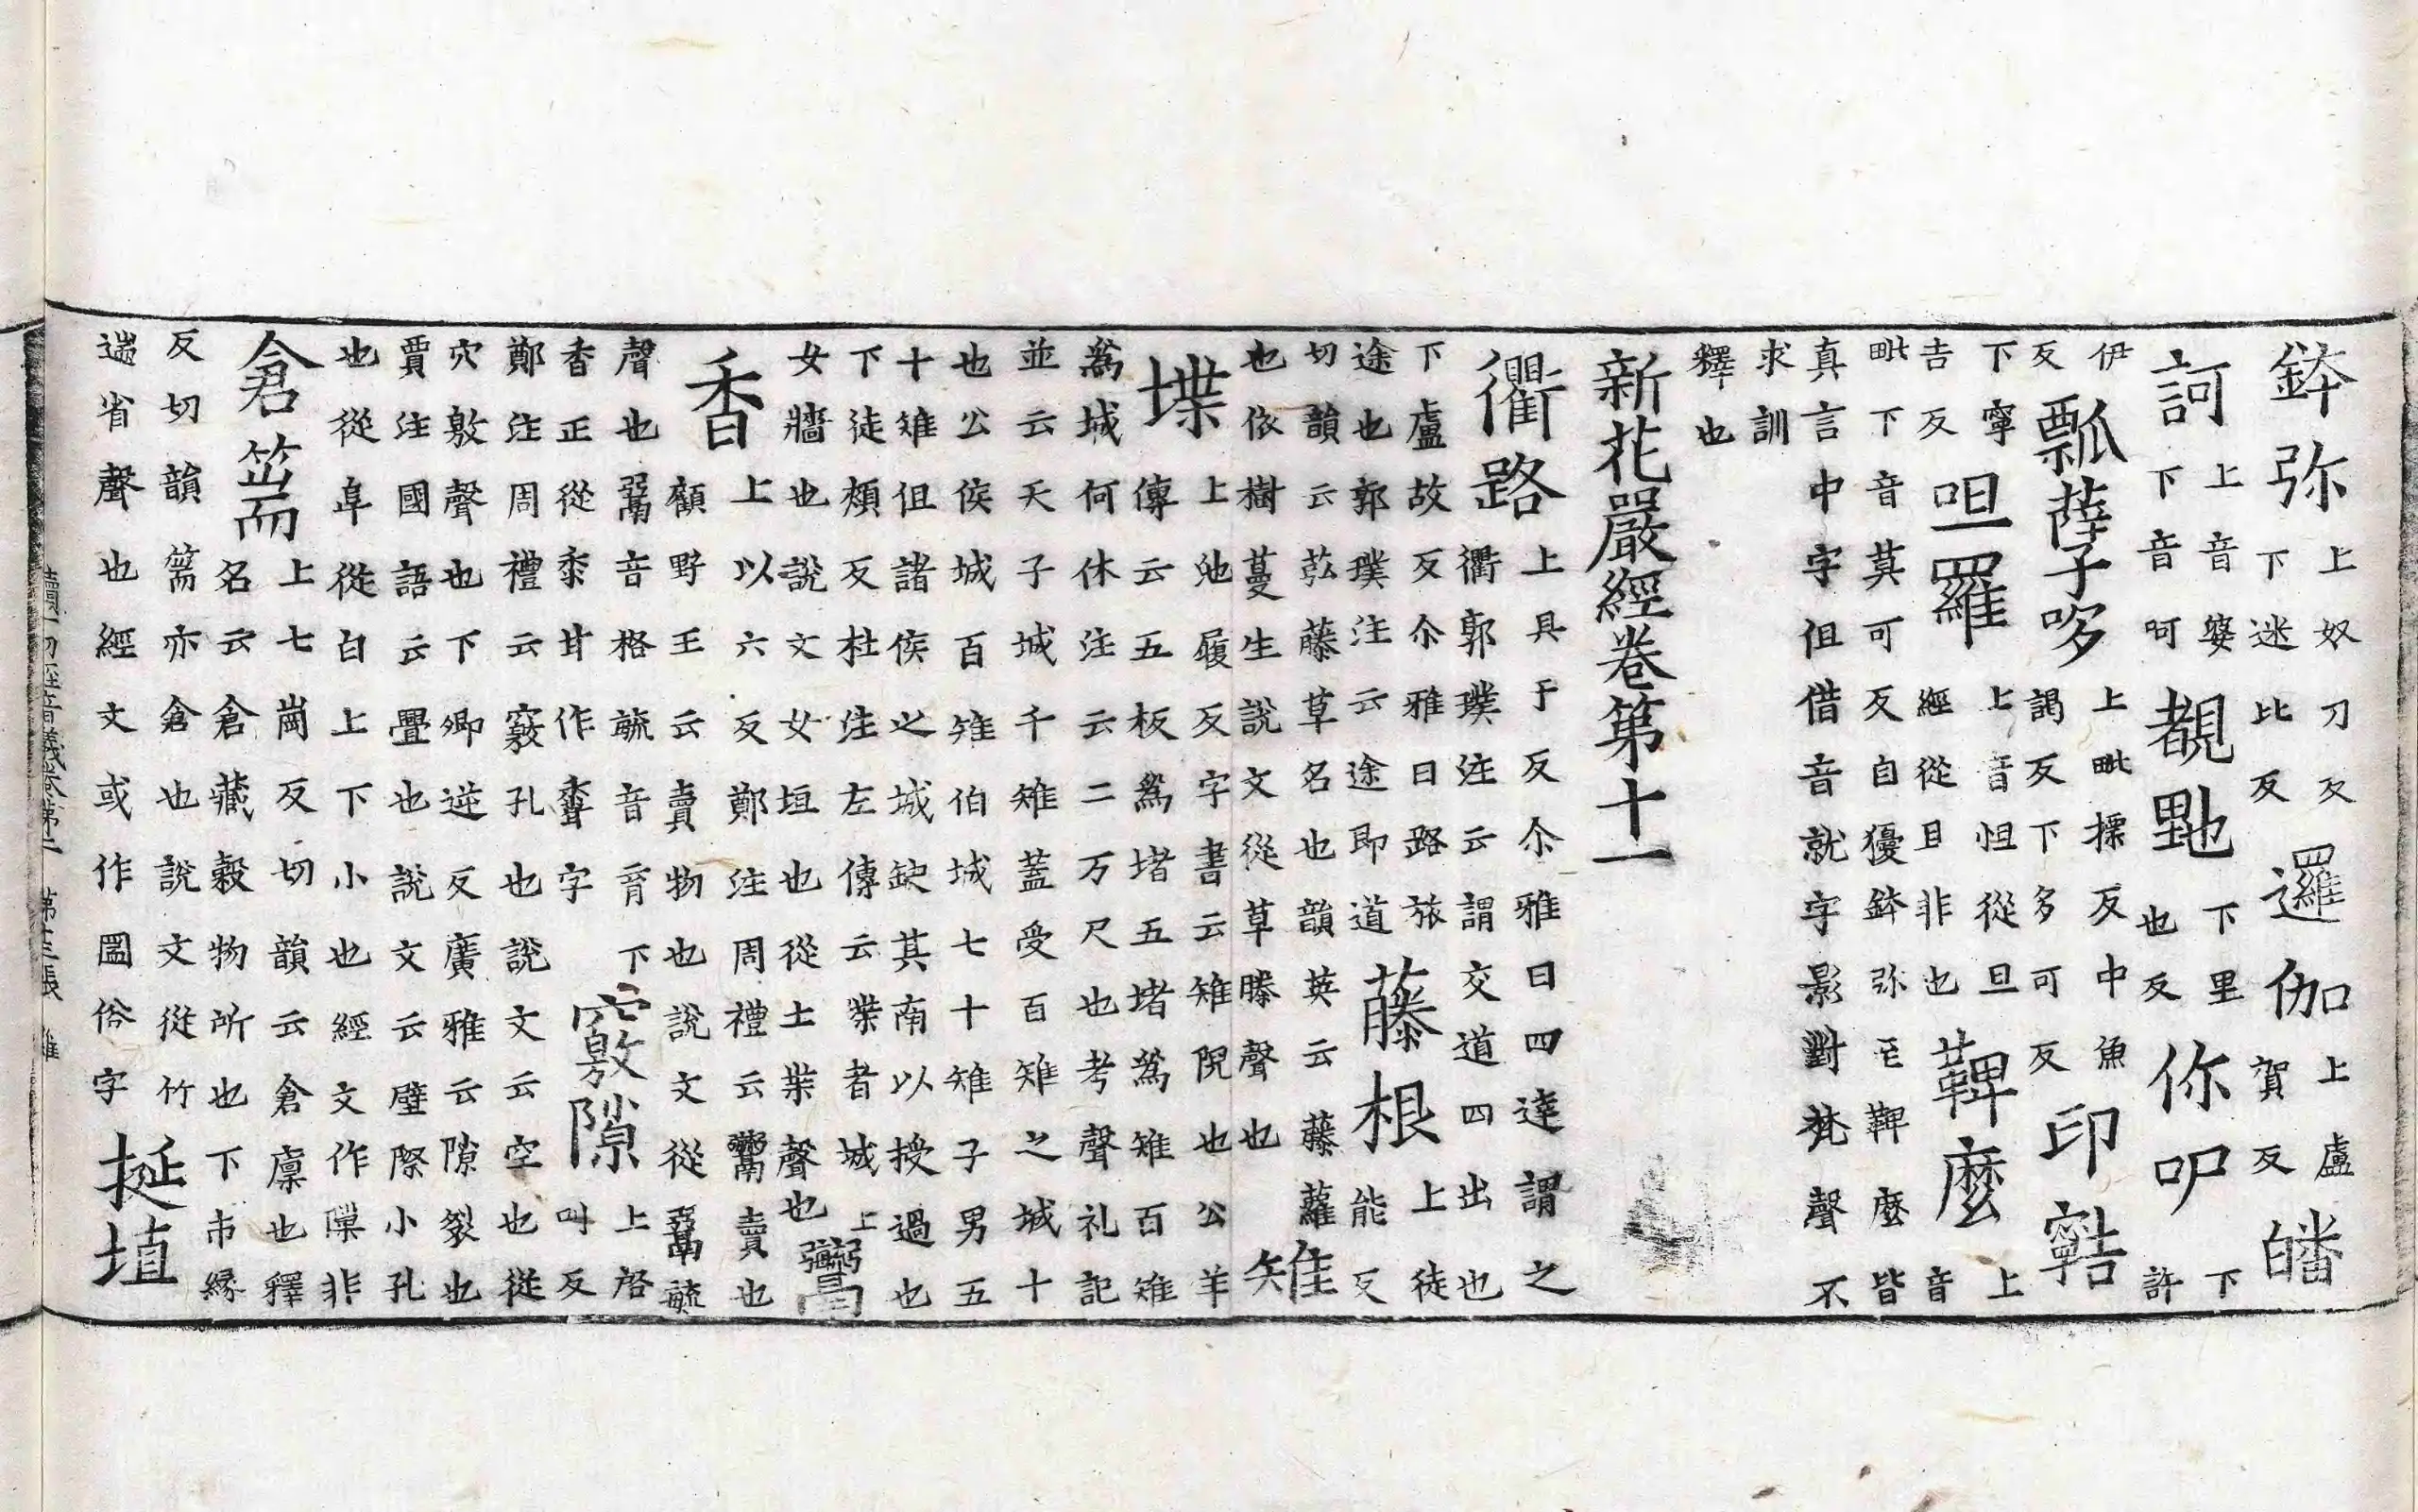 鉢弥上奴刀反下迷比反邏伽上盧賀反皤
訶上音婆下音呵覩㖿下里也反你呬下許
伊反瓢薩孕哆上毗摽反中魚謁反下多可反印𡫸
下寧吉反呾羅上音怛從旦經從且非也鞞麽上音
毗下音莫可反自獶鉢弥至鞞麽皆真言中字但借音就字影對梵聲不
求訓釋也
新花嚴經卷第十一
衢路上具于反尒雅曰四達謂之衢郭璞注云謂交道四出也
下盧故反尒雅曰路旅途也郭璞注云途即道藤根上徒能反
切韻云苰藤草名也韻英云藤蘿也依樹蔓生說文從草滕聲也雉
堞上虵履反字書云雉堄也公羊傳云五板爲堵五堵爲雉百雉
爲城何休注云二万尺也考聲礼記並云天子城千雉蓋受百雉之城十
也公侯城百雉伯城七十雉子男五十雉但諸侯之城缺其南以授過也
下徒頰反杜注左傳云堞者城上女牆也說文女垣也從土葉聲也鬻
香上以六反鄭注周禮云鬻賣也顧野王云賣物也說文從䰜毓
聲也䰜音格毓音育下香正從黍甘作䅨字竅隙上啓叫反
鄭注周禮云竅孔也說文云空也從穴敫聲也下卿逆反廣雅云隙裂也
賈注國語云舋也說文云壁際小孔也從阜從白上下小也經文作隟非
倉篅上七崗反切韻云倉廩也釋名云倉藏穀物所也下市緣
反切韻篅亦倉也說文從竹遄省聲也經文或作圌俗字挻埴
續一切經音義卷第二 第十三張